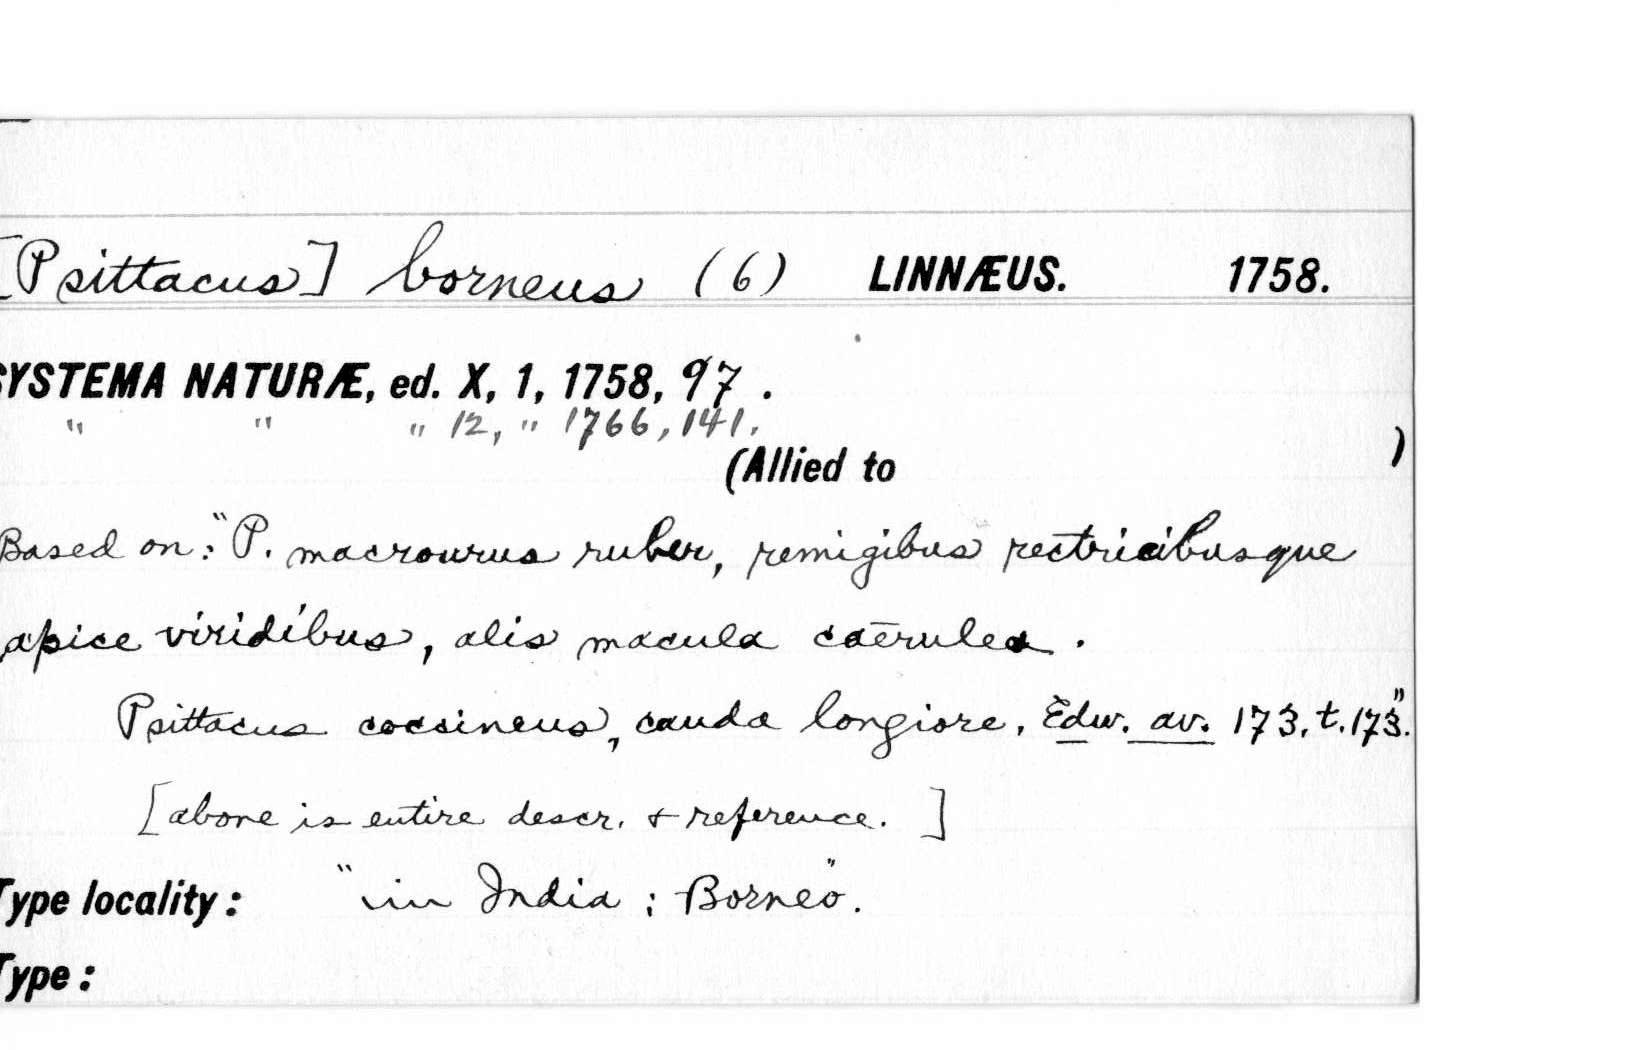 [Psittacus] borneus (6) LINNÆUS. 1758.
SYSTEMA NATURÆ, ed. X, 1, 1758, 97.
" " " 12, " 1766, 141.
(Allied to )
Based on: "P. macrourus ruber, remigibus rectricibusque
apice viridibus, alis macula caerulea.
Psittacus coccineus, cauda longiore. Edw. av. 173. t. 173."
[above is entire descr. & reference.]
Type locality: "in India; Borneo".
Type: